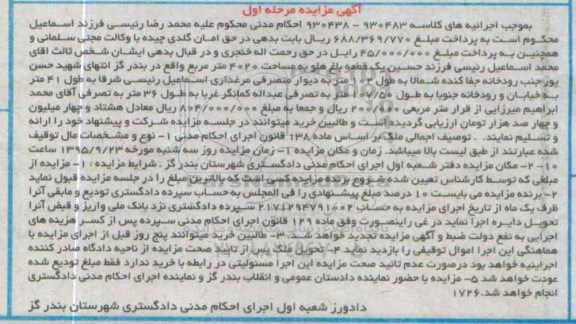 آگهی مزایده مرحله اول
بموجب اجرائیه های کلاسه ۹۳۰۴۸۳ – ۹۳۰۴۳۸ احکام مدنی محکوم علیه محمد رضا رئیسی فرزند اسماعیل
محکوم است به پرداخت مبلغ ۶۸۸/۳۶۹/۷۷۰ ریال بابت بدهی در حق امان گلدی چیده با وکالت مجتبی سلمانی و
همچنین به پرداخت مبلغ ۴۵/۰۰۰/۰۰۰ ریال در حق رحمت اله خنجری و در قبال بدهی ایشان شخص ثالث آقای
محمد اسماعیل رئیسی فرزند حسین یک قطعه باغ هلو به مساحت ۴۰۲۰ متر مربع واقع در بندر گز انتهای شهید حسن
پور جنب رودخانه جفا کنده شمالا به طول متر به دیوار متصرفی مرغداری اسماعیل رئیسی شرقا به طول ۴۱ متر
به خیابان و رودخانه جنوبا به طول متر به تصرفی عبداله کمانگر غربا به طول ۳۶ متر به تصرفی آقای محمد
ابراهیم میرزایی از قرار متر مربعی ۲۰۰/۰۰۰ ریال و جمعا به مبلغ ۸۰۴/۰۰۰/۰۰۰ ریال معادل هشتاد و چهار میلیون
و چهار صد هزار تومان ارزیابی گردیده است و طالبین خرید میتوانند در جلسه مزایده شرکت و پیشنهاد خود را ارائه
و تسلیم نمایند . توصیف اجمالی ملک بر اساس ماده ۱۳۸ قانون اجرای احکام مدنی ۱- نوع و مشخصات مال توقیف
شده عبارتند از طبق لیست بالا میباشد. زمان و مکان مزایده ۱- زمان مزایده روز سه شنبه مورخه ۱۳۹۵/۹/۲۳ ساعت
۱۰ ۲- مکان مزایده دفتر شعبه اول اجرای احکام مدنی دادگستری شهرستان بندر گز . شرایط مزایده : ۱- مزایده از
مبلغی که توسط کارشناس تعیین شده شروع برنده مزایده کسی است که بالاترین مبلغ را در جلسه مزایده قبول نماید
۲- برنده مزایده می بایست ۱۰ درصد مبلغ پیشنهادی را فی المجلس به حساب سپرده دادگستری تودیع و مابقی آنرا
ظرف یک ماه از تاریخ اجرای مزایده به حساب ۲۱۷۱۲۹۴۷۹۱۰۰۲ سپرده دادگستری نزد بانک ملی واریز و قبض آنرا
تحویل دایره اجرا نماید در غیر اینصورت وفق ماده ۱۲۹ قانون اجرای احکام مدنی سپرده پس از کسر هزینه های
اجرایی به نفع دولت ضبط و آگهی مزایده تجدید خواهد شد. ۳- طالبین خرید میتوانند پنج روز قبل از اجرای مزایده با
هماهنگی این اجرا اموال توقیفی را بازدید نماید ۴- تحویل ملک پس از تایید صحت مزایده از ناحیه دادگاه صادر کننده
اجرائیه خواهد بود درصورت عدم تائید صحت مزایده این اجرا مسئولیتی در رابطه با خرید ندارد فقط مبلغ تودیع شده
عودت خواهد شد ۵- مزایده با حضور نماینده دادستان عمومی و انقلاب بندر گز و نماینده اجرای احکام مدنی دادگستری
انجام خواهد شد. ۱۷۲۶
دادورز شعبه اول اجرای احکام مدنی دادگستری شهرستان بندر گز